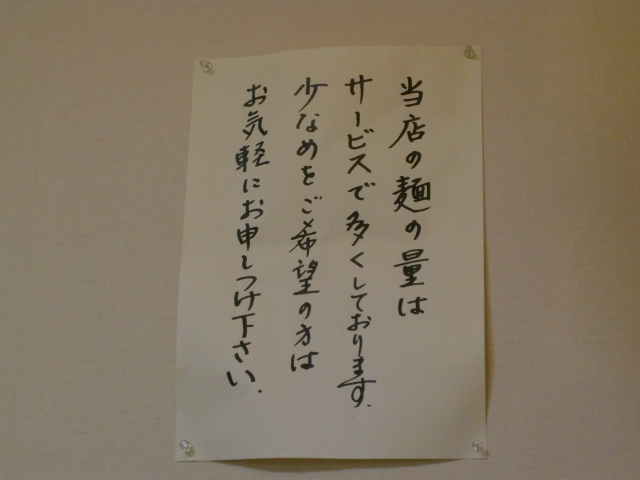 当店の麺の量は
サービスで多くしております.
少なめをご希望の方は
お気軽にお申しつけ下さい.